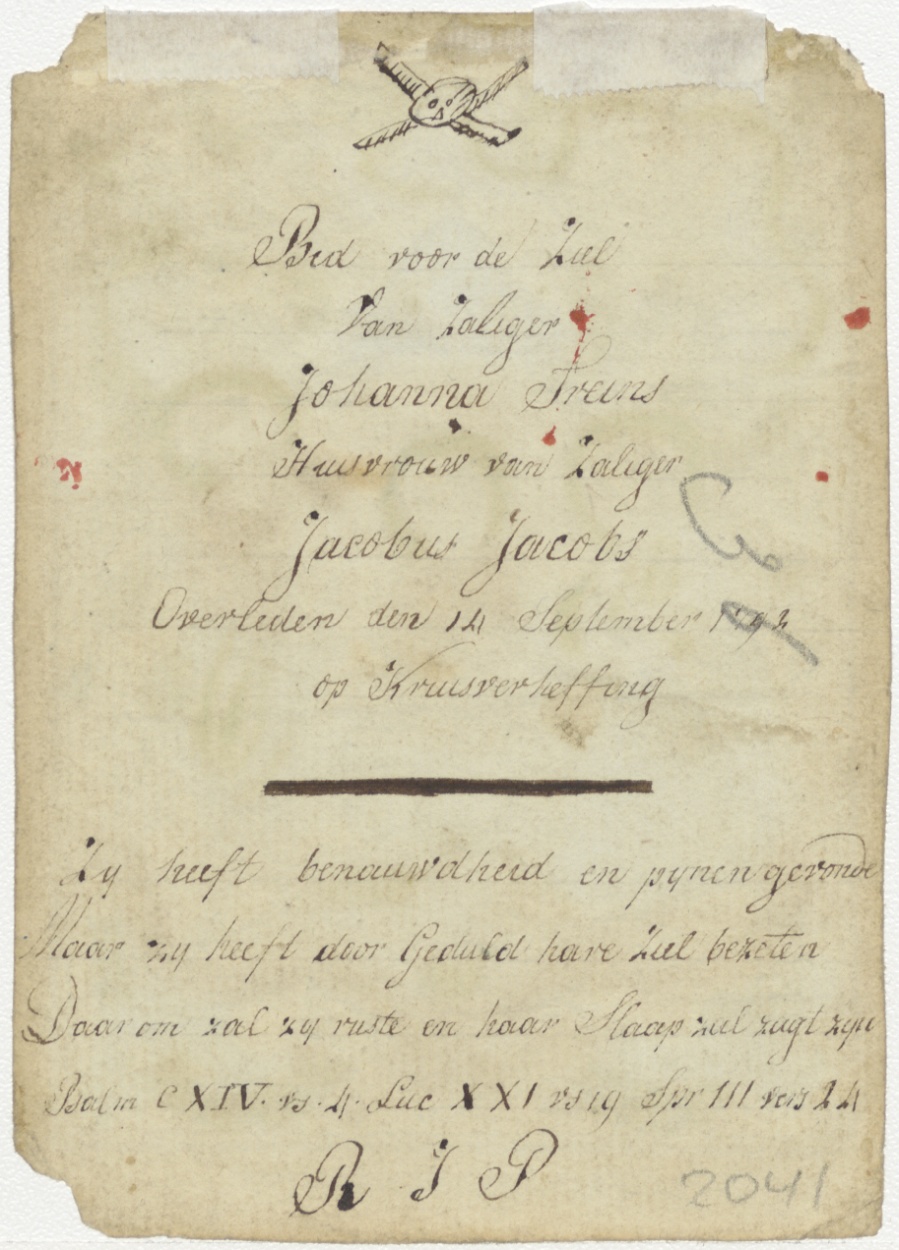 Bid voor de Ziel
Van Zaliger
Johanna Freins
Huisvrouw van Zaliger
Jacobus Jacobs
Overleden den 14 September
op Kruisverheffing
Zy heeft benauwdheid en pynen gevonde
Maar zy heeft door Geduld hare Ziel bezeten
Daarom zal zy ruste en haar Slaap zal zagt zyn
Psalm CXIV. vs. 4. Luc XXI vs 19 Spr III vers 24
R I P
2041